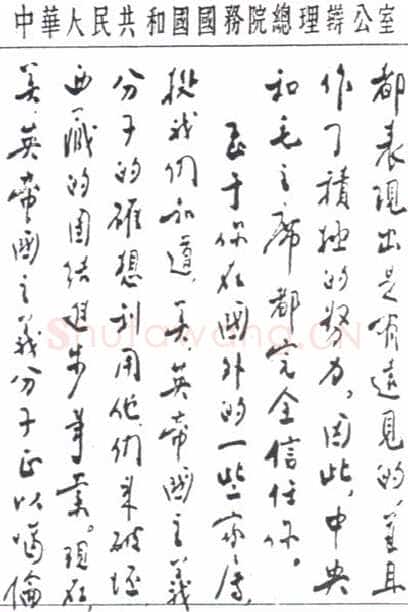 中華人民共和國國務院總理辦公室
都表現出是有遠見的,並且
作了積極的努力。因此,中央
和毛主席都完全信任你。
至于你在國外的一些家属,
据我們知道,美、英帝國主義
分子的確想利用他們来破坯
西藏的团结進步事業。現在,
美、英帝國主義分子正以噶倫
Shufawang.CN